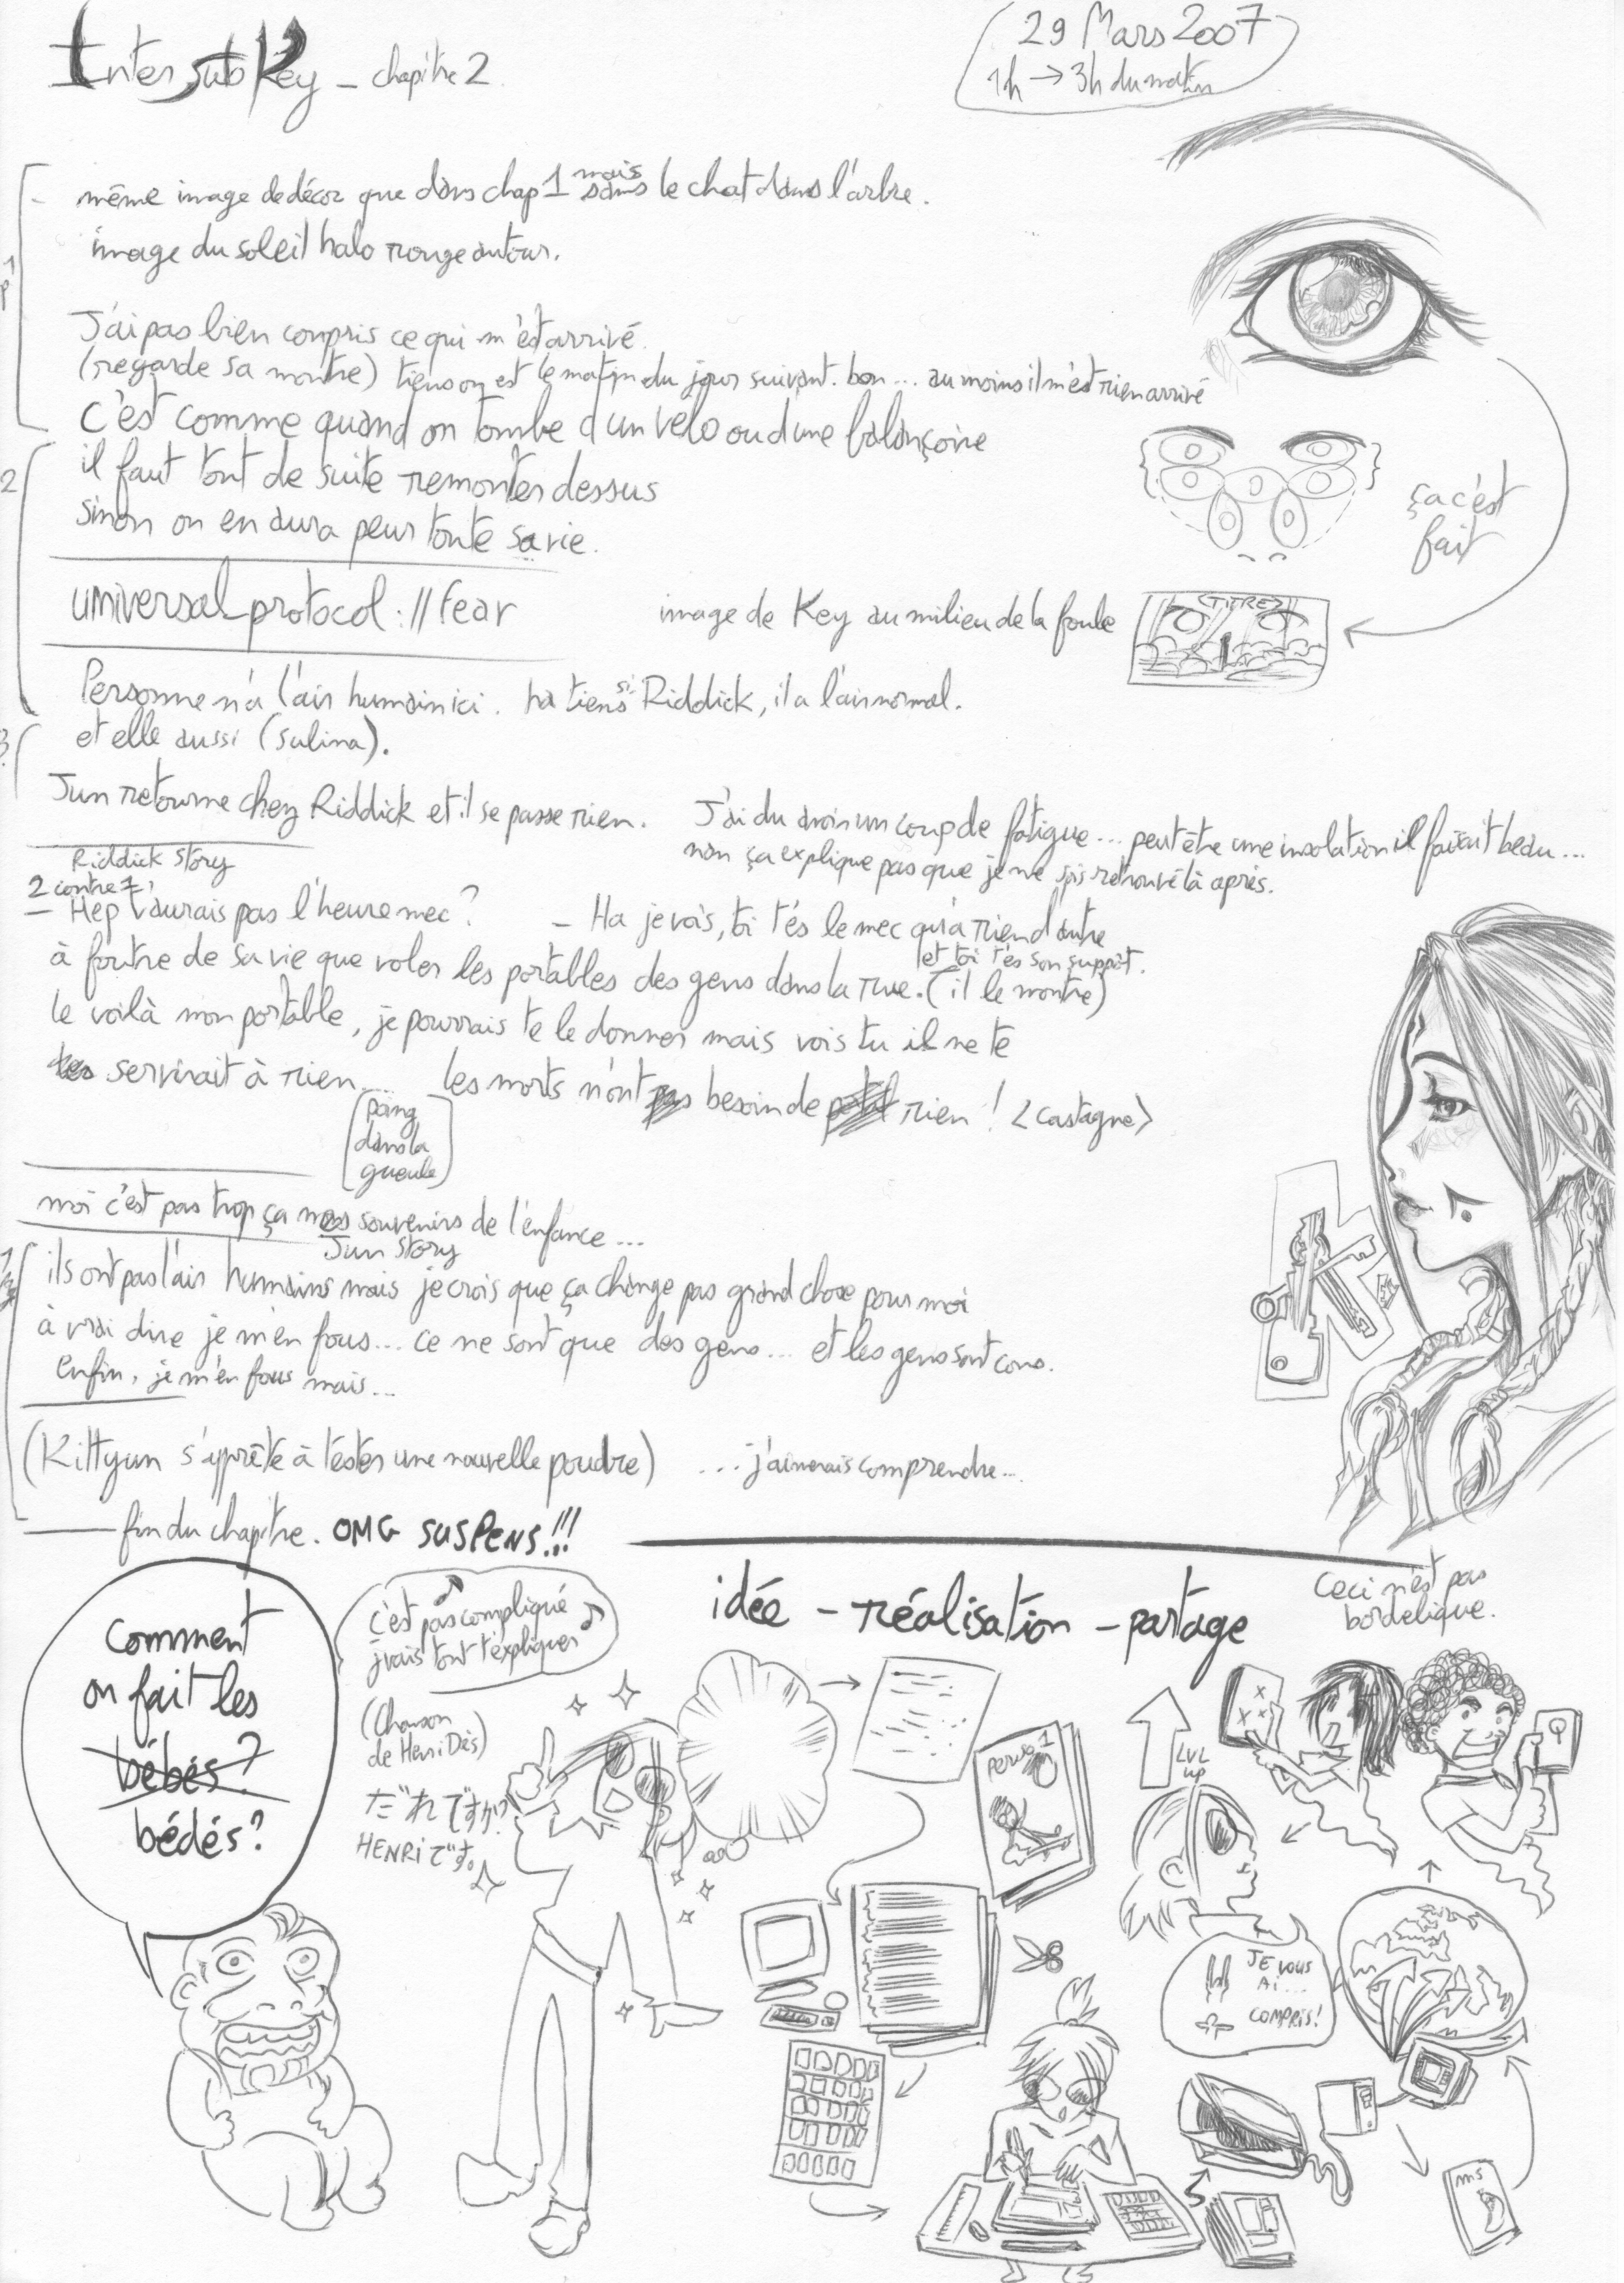 Inter Sub Key – chapitre 2
29 Mars 2007
1h → 3h du matin
1p
- même image de décor que dans chap 1 mais sans le chat dans l'arbre.
image du soleil halo rouge autour.
J'ai pas bien compris ce qui m'est arrivé.
(regarde sa montre) tiens on est le matin du jour suivant. bon... au moins il m'est rien arrivé
c'est comme quand on tombe d'un vélo ou d'une balançoire
2
il faut tout de suite remonter dessus
sinon on en aura peur toute sa vie.
ça c'est
fait
universal_protocol://fear
image de Key au milieu de la foule
<TITRE>
Personne n'a l'air humain ici. ha tiens si Riddick, il a l'air normal.
3
et elle aussi (Salina).
Jun retourne chez Riddick et il se passe rien.
J'ai du avoir un coup de fatigue... peut être une insolation il faisait beau...
non ça explique pas que je me sois retrouvé là après.
Riddick Story
2 contre 1,
– Hep t'aurais pas l'heure mec ?
– Ha je vois, toi t'es le mec qu'a rien d'autre
à foutre de sa vie que voler les portables des gens dans la rue. (il le montre)
et toi t'es son support.
le voilà mon portable, je pourrais te le donner mais vois tu il ne te
servirait à rien.... les morts n'ont pas besoin de rien ! <castagne>
[poing
dans la
gueule]
moi c'est pas trop ça mes souvenirs de l'enfance...
Jun Story
ils ont pas l'air humains mais je crois que ça change pas grand chose pour moi
à vrai dire je m'en fous... ce ne sont que des gens... et les gens sont cons.
enfin, je m'en fous mais...
(Kittyun s'apprête à tester une nouvelle poudre) ...j'aimerais comprendre...
fin du chapitre. OMG SUSPENS!!!
comment
on fait les
bébés ?
bédés ?
c'est pas compliqué
j'vais tout t'expliquer
(chanson
de Henri Dès)
だれですか?
HENRIです。
idée – réalisation – partage
Ceci n'est pas
bordelique.
perso 1
LVL
up
JE VOUS
AI...
COMPRIS!
ms